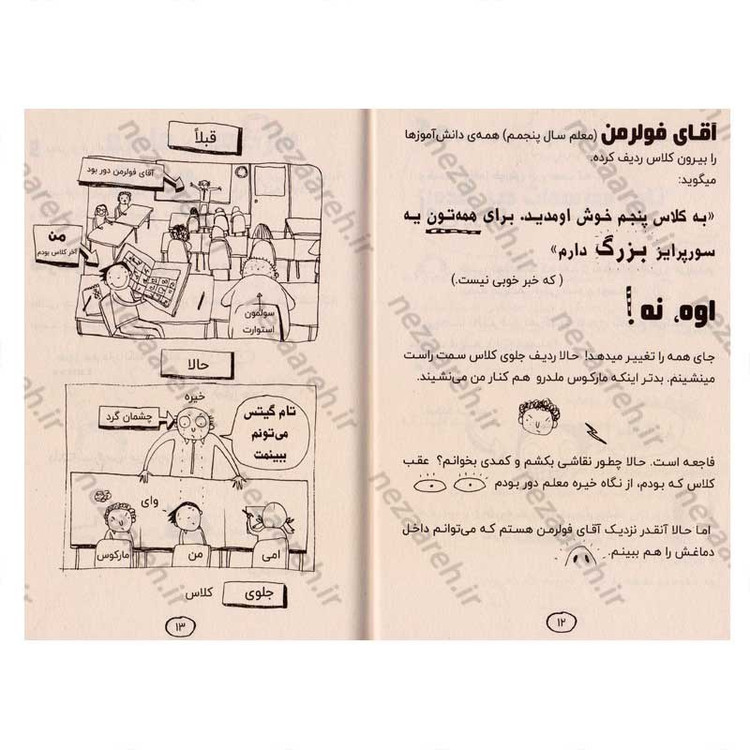 آقای فولرمن (معلم سال پنجمم) همه‌ی دانش‌آموزها
را بیرون کلاس ردیف کرده.
میگوید:
«به کلاس پنجم خوش اومدید، برای همه‌تون یه
سورپرایز بزرگ دارم»
( که خبر خوبی نیست.)
اوه، نه!
جای همه را تغییر میدهد! حالا ردیف جلوی کلاس سمت راست
مینشینم. بدتر اینکه مارکوس ملدرو هم کنار من می‌نشیند.
فاجعه است. حالا چطور نقاشی بکشم و کمدی بخوانم؟ عقب
کلاس که بودم، از نگاه خیره معلم دور بودم
اما حالا آنقدر نزدیک آقای فولرمن هستم که می‌توانم داخل
دماغش را هم ببینم.
۱۲
قبلاً
آقای فولرمن دور بود
من
آخر کلاس بودم
سولمون
استوارت
حالا
خیره
چشمان گرد
تام گیتس
می‌تونم
ببینمت
وای
مارکوس
من
امی
جلوی کلاس
۱۳
nezaareh.ir